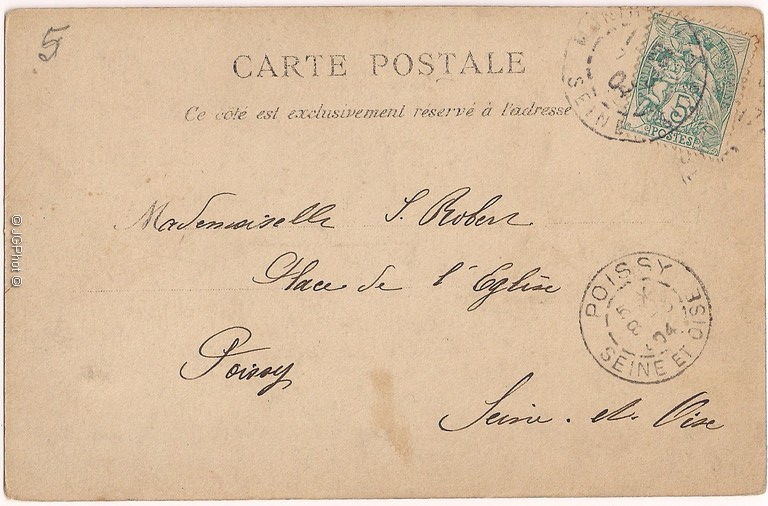 5
CARTE POSTALE
Ce côté est exclusivement réservé à l'adresse
SEINE
5
POSTES
Mademoiselle S. Robert
Place de l'Eglise
Poissy
Seine-et-Oise
POISSY
8
04
SEINE ET OISE
© JGPhot ©